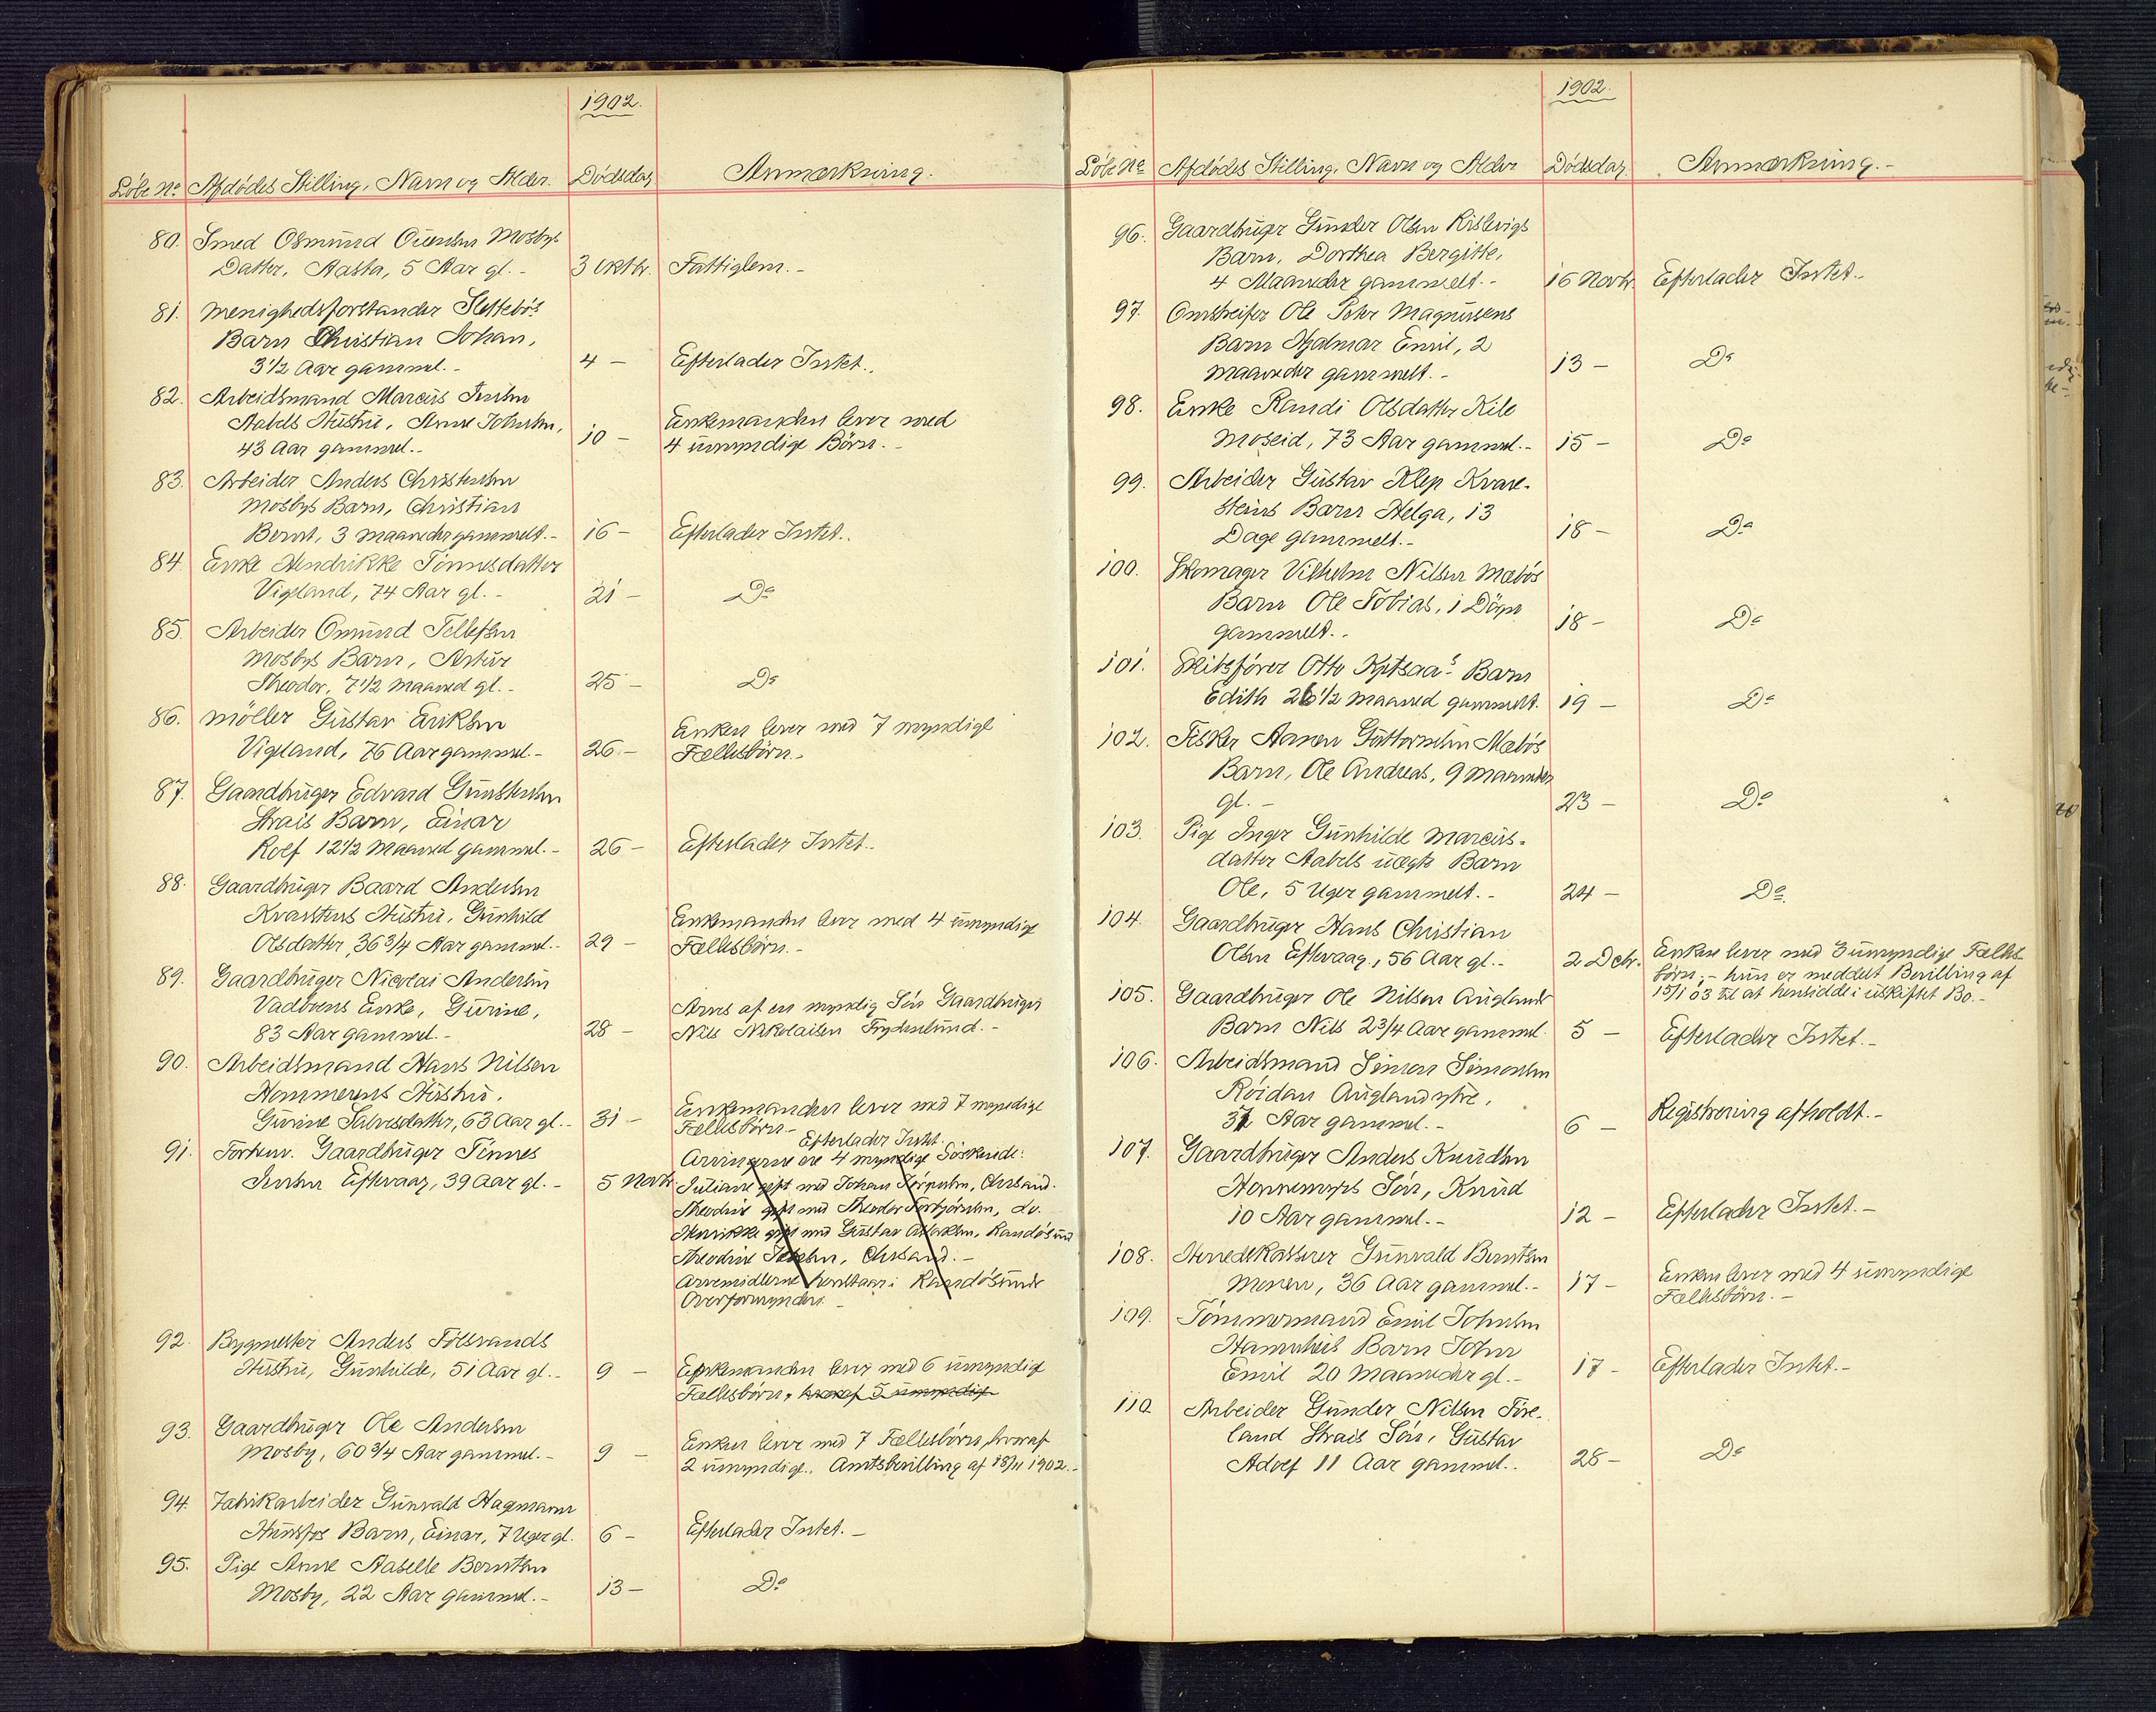 1902.
Löbe No. Afdödes Stilling, Navn og Alder. Dödsdag Anmærkning.
80. Smed Osmund Ouensen Mosbys
Datter, Aasta, 5 Aar gl. - 3 Oktbr. Fattiglem. -
81. Menighedsforstander Slettebös
Barn Christian Johan,
3 1/2 Aar gammel. - 4 - Efterlader Intet.
82. Arbeidsmand Marcus Jensen
Aabels Hustru, Anne Johnsen, Enkemanden lever med
43 Aar gammel. - 10 - 4 umyndige Börn. -
83. Arbeider Anders Christensen
Mosbys Barn, Christian
Bernt, 3 Maaneder gammelt. - 16 - Efterlader Intet.
84. Enke Hendrikke Tönnesdatter
Vigeland, 74 Aar gl. - 21 - Do
85. Arbeider Omund Tellefsen
Mosbys Barn, Artur
Theodor, 7 1/2 Maaned gl. - 25 - Do
86. Möller Gustav Eriksen Enken lever med 7 myndige
Vigeland, 76 Aar gammel. - 26 - Fællesbörn. -
87. Gaardbruger Edvard Gunstensen
Strais Barn, Einar
Rolf 12 1/2 Maaned gammel. - 26 - Efterlader Intet. -
88. Gaardbruger Baard Andersen
Kvarstens Hustru, Gunhild Enkemanden lever med 4 umyndige
Olsdatter, 36 3/4 Aar gammel. - 29 - Fællesbörn. -
89. Gaardbruger Nicolai Andersen
Vadboens Enke, Gurine, Arves af en myndig Sön Gaardbruger
83 Aar gammel. - 28 - Nils Nikolaisen Frydenlund. -
90. Arbeidsmand Hans Nilsen
Hommerens Hustru, Enkemanden lever med 7 myndige
Gurine Salvesdatter, 63 Aar gl. - 31 - Fællesbörn. -
Efterlader Intet.
91. Forhenv. Gaardbruger Tönnes Arvingerne ere 4 myndige Söskende:
Jensen Eftevaag, 39 Aar gl. - 5 Novbr. Juliane gift med Johan Jörgensen, Chrsand.
Theodine gift med Theodor Torbjörnsen, do.
Henrikke gift med Gustav Aslaksen, Randösund
Theodine Jensen, Chrsand. -
Arvemidlerne henstaar i Randösunds
Overformynderi. -
92. Bygmester Anders Fölsvands
Hustru, Gunhilde, 51 Aar gl. - 9 - Enkemanden lever med 6 umyndige
Fællesbörn, hvoraf 5 umyndige
93. Gaardbruger Ole Andersen Enken lever med 7 Fællesbörn, hvoraf
Mosby, 60 3/4 Aar gammel. - 9 - 2 umyndige. Amtsbevilling af 18/11 1902. -
94. Fabrikarbeider Gunvald Hagemann
Hunsfos Barn, Einar, 7 Uger gl. 6 - Efterlader Intet. -
95. Pige Anne Aabelle Berntsen
Mosby, 22 Aar gammel. - 13 - Do
1902.
Löbe No Afdödes Stilling, Navn og Alder Dödsdag. Anmærkning. -
96. Gaardbruger Gunder Olsen Kislevigs
Barn, Dorthea Bergitte,
4 Maaneder gammelt. - 16 Novbr. Efterlader Intet. -
97. Omstreifer Ole Peter Magnussens
Barn Hjalmar Emil, 2
Maaneder gammelt. - 13 - Do
98. Enke Randi Olsdatter Kile
Moseid, 73 Aar gammel. - 15 - Do
99. Arbeider Gustav Klep Kvare-
steins Barn Helga, 13
Dage gammelt. - 18 - Do
100. Skomager Vilhelm Nilsen Mæbös
Barn Ole Tobias, 1 Dögn
gammelt. - 18 - Do
101. Skibsförer Otto Kjetsaas Barn
Edith 26 1/2 Maaned gammelt. 19 - Do
102. Fisker Aanen Guttormsen Mæbös
Barn, Ole Andreas, 9 Maaneder
gl. - 23 - Do
103. Pige Inger Gunhilde Marcus-
datter Aabels uægte Barn
Ole, 5 Uger gammelt. - 24 - Do
104. Gaardbruger Hans Christian
Olsen Eftevaag, 56 Aar gl. - 2 Decbr. Enken lever med 3 umyndige Fælles-
börn; - hun er meddelt Bevilling af
15/1 03 til at hensidde i uskiftet Bo. -
105. Gaardbruger Ole Nilsen Auglands
Barn Nils 2 3/4 Aar gammel. 5 - Efterlader Intet. -
106. Arbeidsmand Simon Simonsen
Röidan Augland ytre,
31 Aar gammel. - 6 - Registrering afholdt. -
107. Gaardbruger Anders Knudsen
Honnemyrs Sön, Knud
10 Aar gammel. - 12 - Efterlader Intet. -
108. Herredskasserer Gunvald Berntsen Enken lever med 4 umyndige
Monen, 36 Aar gammel. - 17 - Fællesbörn. -
109. Tömmermand Emil Johnsen
Hamreheis Barn John
Emil 20 Maaneder gl. - 17 - Efterlader Intet. -
110. Arbeider Gunder Nilsen Fire-
land Strais Sön, Gustav
Adolf 11 Aar gammel. 28 - Do